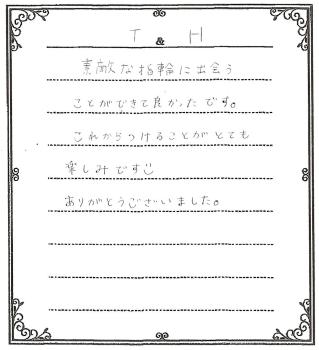 T & H
素敵な指輪に出会う
ことができて良かったです。
これからつけることがとても
楽しみです☺
ありがとうございました。